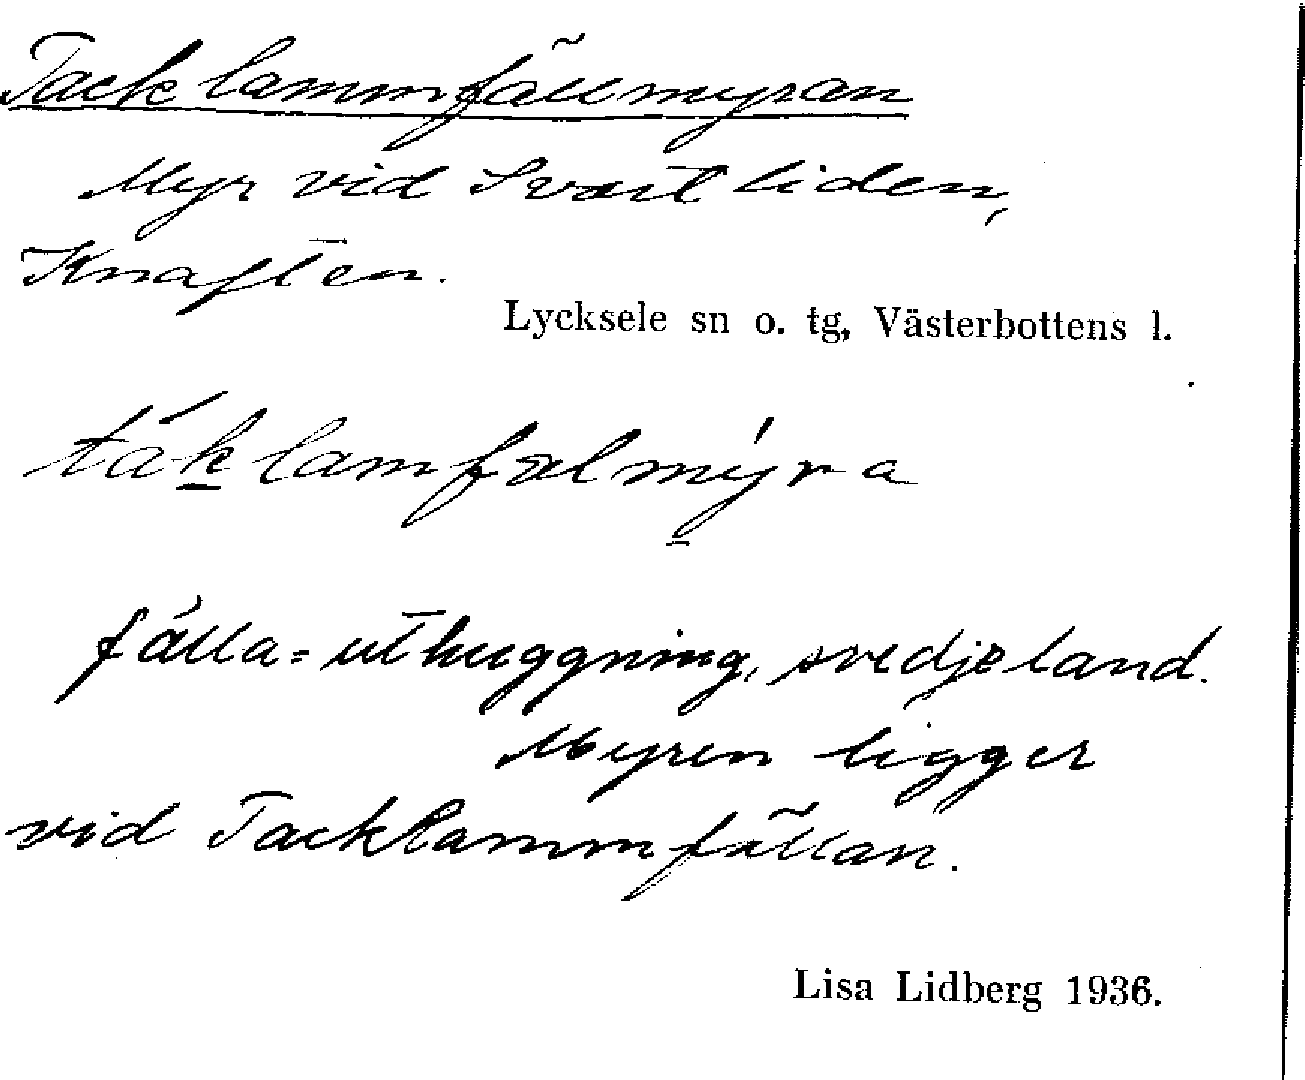 Tacklammfällmyran
Myr vid Svartliden,
Knaften.
Lycksele sn o. tg, Västerbottens l.
ták̲lamfælmýra
fälla = uthuggning, svedjeland.
Myren ligger
vid Tacklammfällan.
Lisa Lidberg 1936.